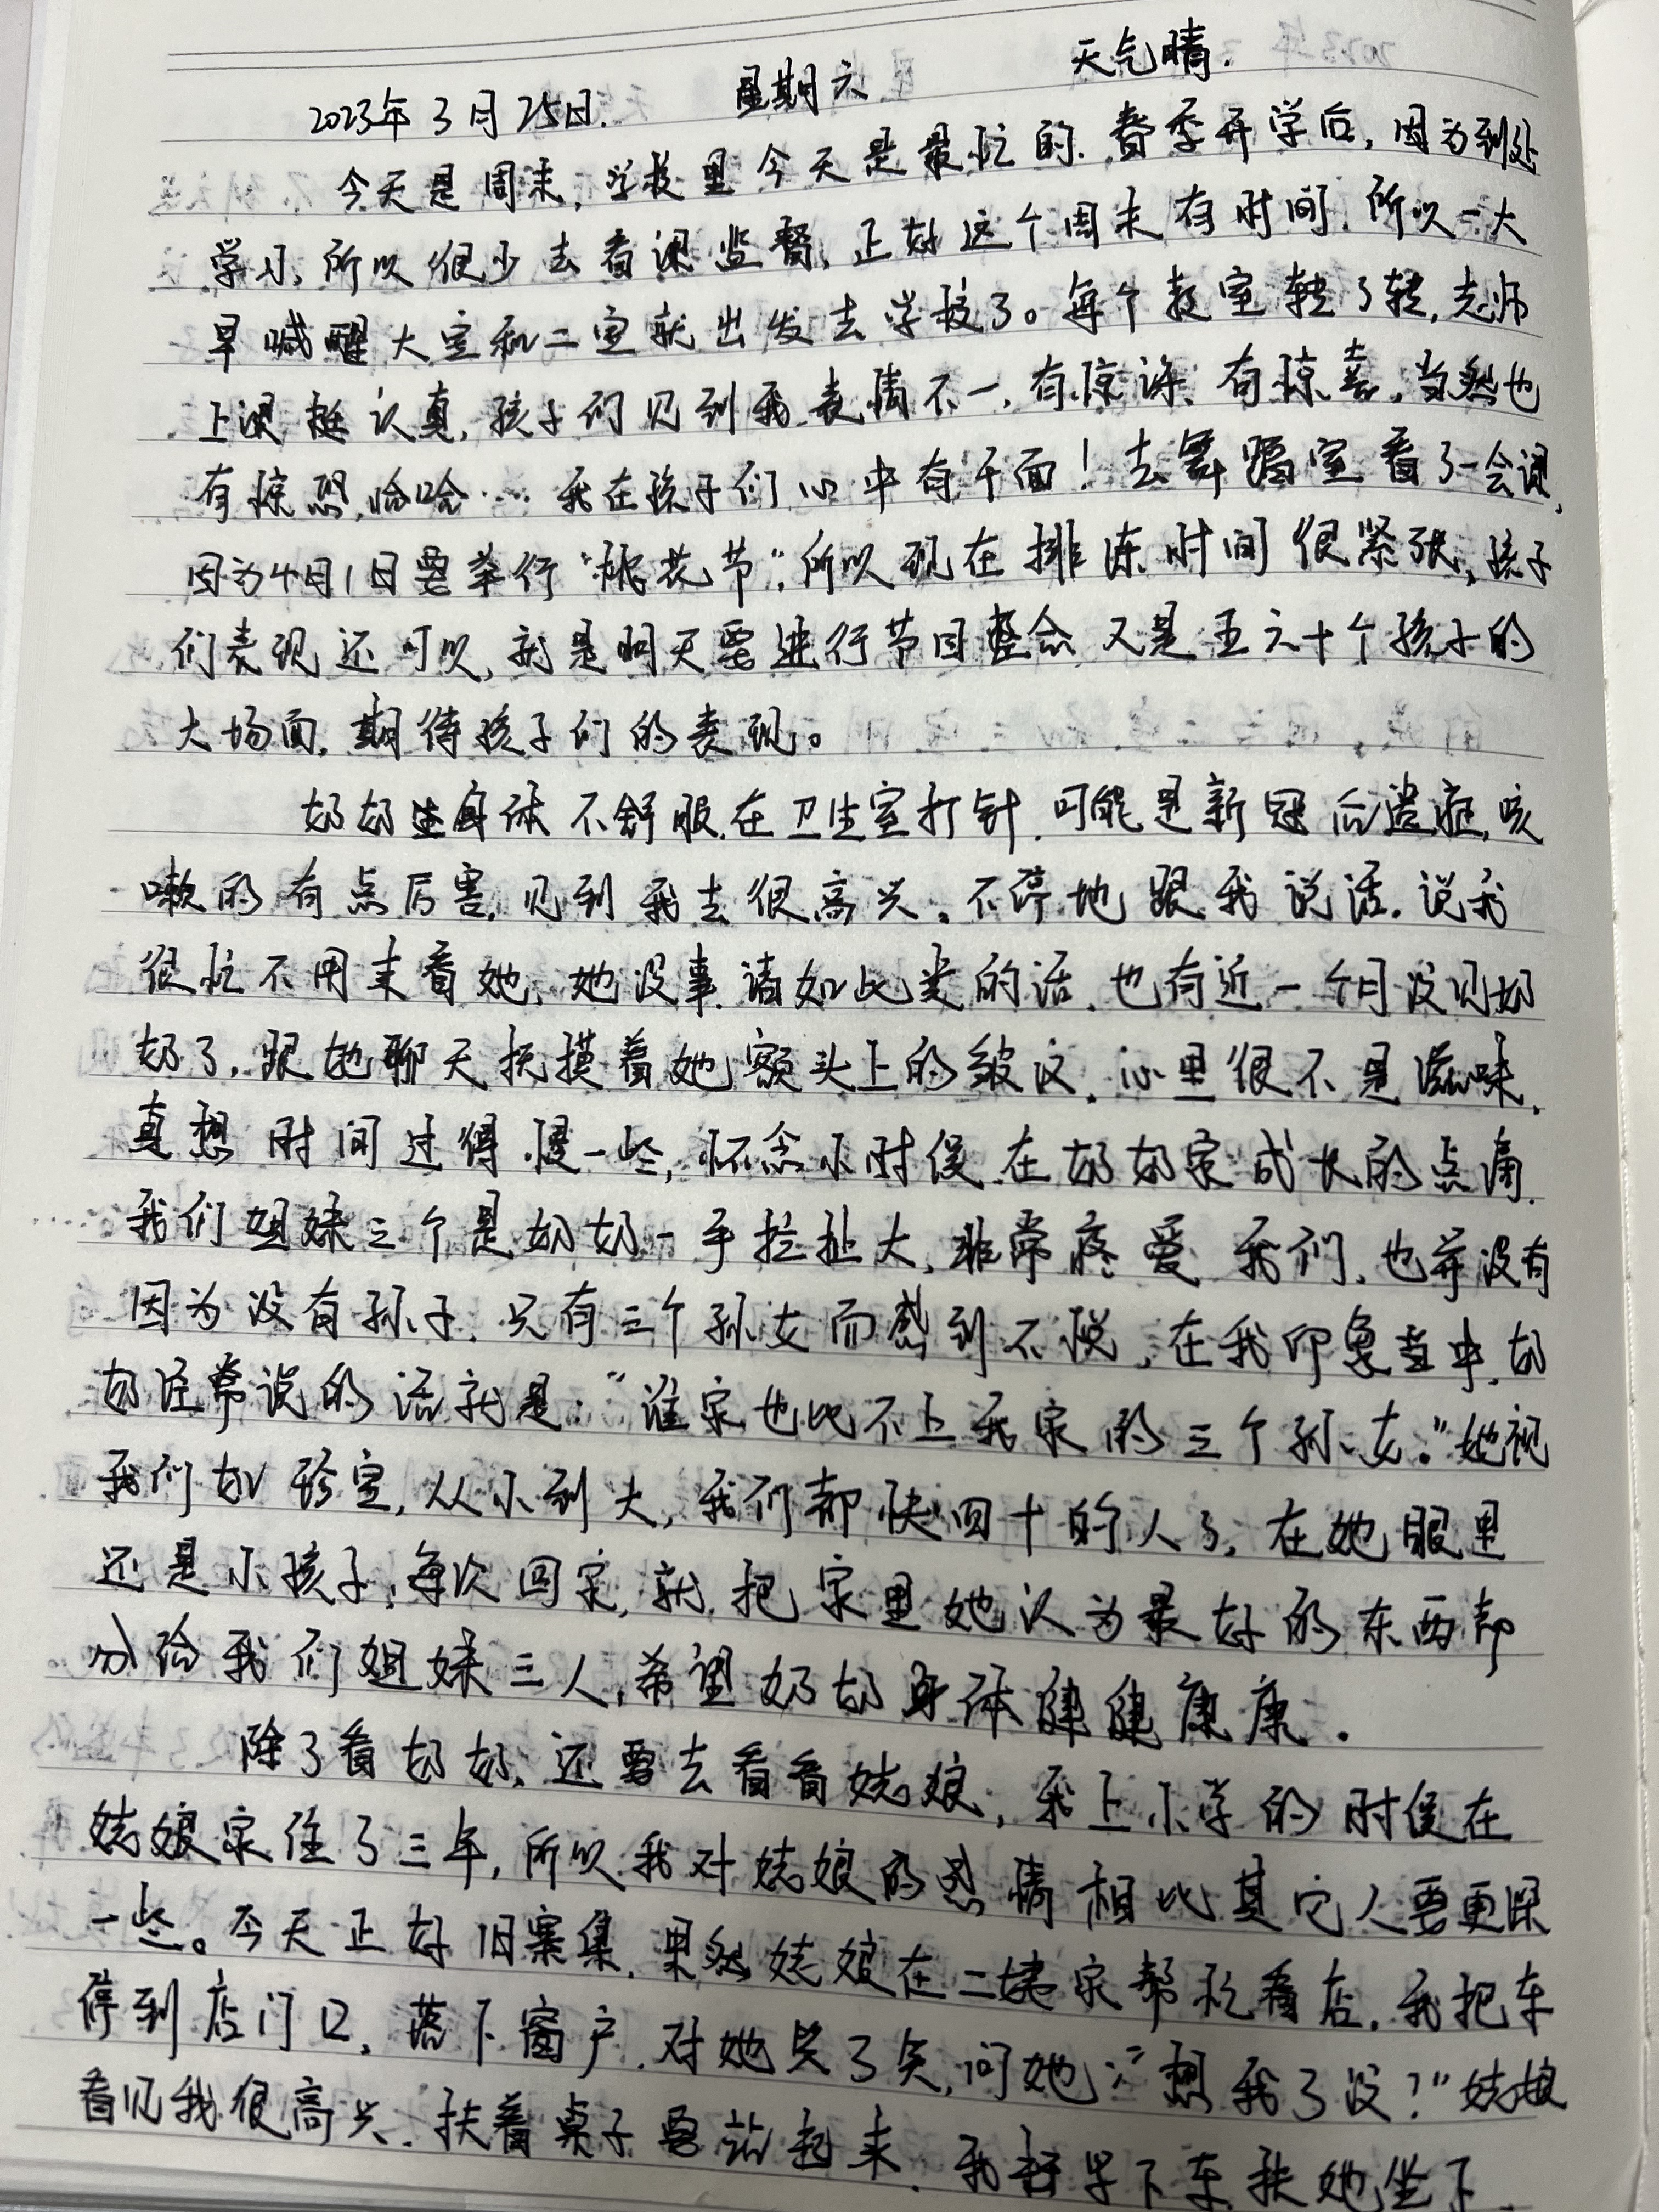 2023年3月25日. 星期六 天气晴.
今天是周末,学校里今天是最忙的.春季开学后,因为到处
学习,所以很少去看课监督,正好这个周末有时间.所以一大
早喊醒大宝和二宝就出发去学校了。每个教室转了转,老师
上课挺认真,孩子们见到我表情不一,有惊讶、有惊喜,当然也
有惊恐,哈哈……我在孩子们心中有千面!去舞蹈室看了一会课,
因为4月1日要举行“桃花节”,所以现在排练时间很紧张,孩子
们表现还可以,就是明天要进行节目整合,又是五六十个孩子的
大场面,期待孩子们的表现。
奶奶身体不舒服,在卫生室打针.可能是新冠后遗症,咳
嗽的有点厉害,见到我去很高兴,不停地跟我说话.说我
很忙不用来看她,她没事诸如此类的话.也有近一个月没见奶
奶了,跟她聊天抚摸着她额头上的皱纹,心里很不是滋味,
真想时间过得慢一些,怀念小时候在奶奶家成长的点滴.
我们姐妹三个是奶奶一手拉扯大,非常疼爱我们,也并没有
因为没有孙子.只有三个孙女而感到不悦,在我印象当中,奶
奶经常说的话就是:“谁家也比不上我家的三个孙女。”她视
我们如珍宝,从小到大,我们都快四十的人了,在她眼里
还是小孩子,每次回家,就把家里她认为最好的东西都
分给我们姐妹三人,希望奶奶身体健健康康.
除了看奶奶,还要去看看姑娘,我上小学的时候在
姑娘家住了三年,所以我对姑娘的感情相比其它人要更深
一些。今天正好旧寨集,果然姑娘在二婕家帮忙看店.我把车
停到店门口,落下窗户.对她笑了笑,问她:“想我了没?”姑娘
看见我很高兴.扶着桌子要站起来.我赶早下车扶她坐下.